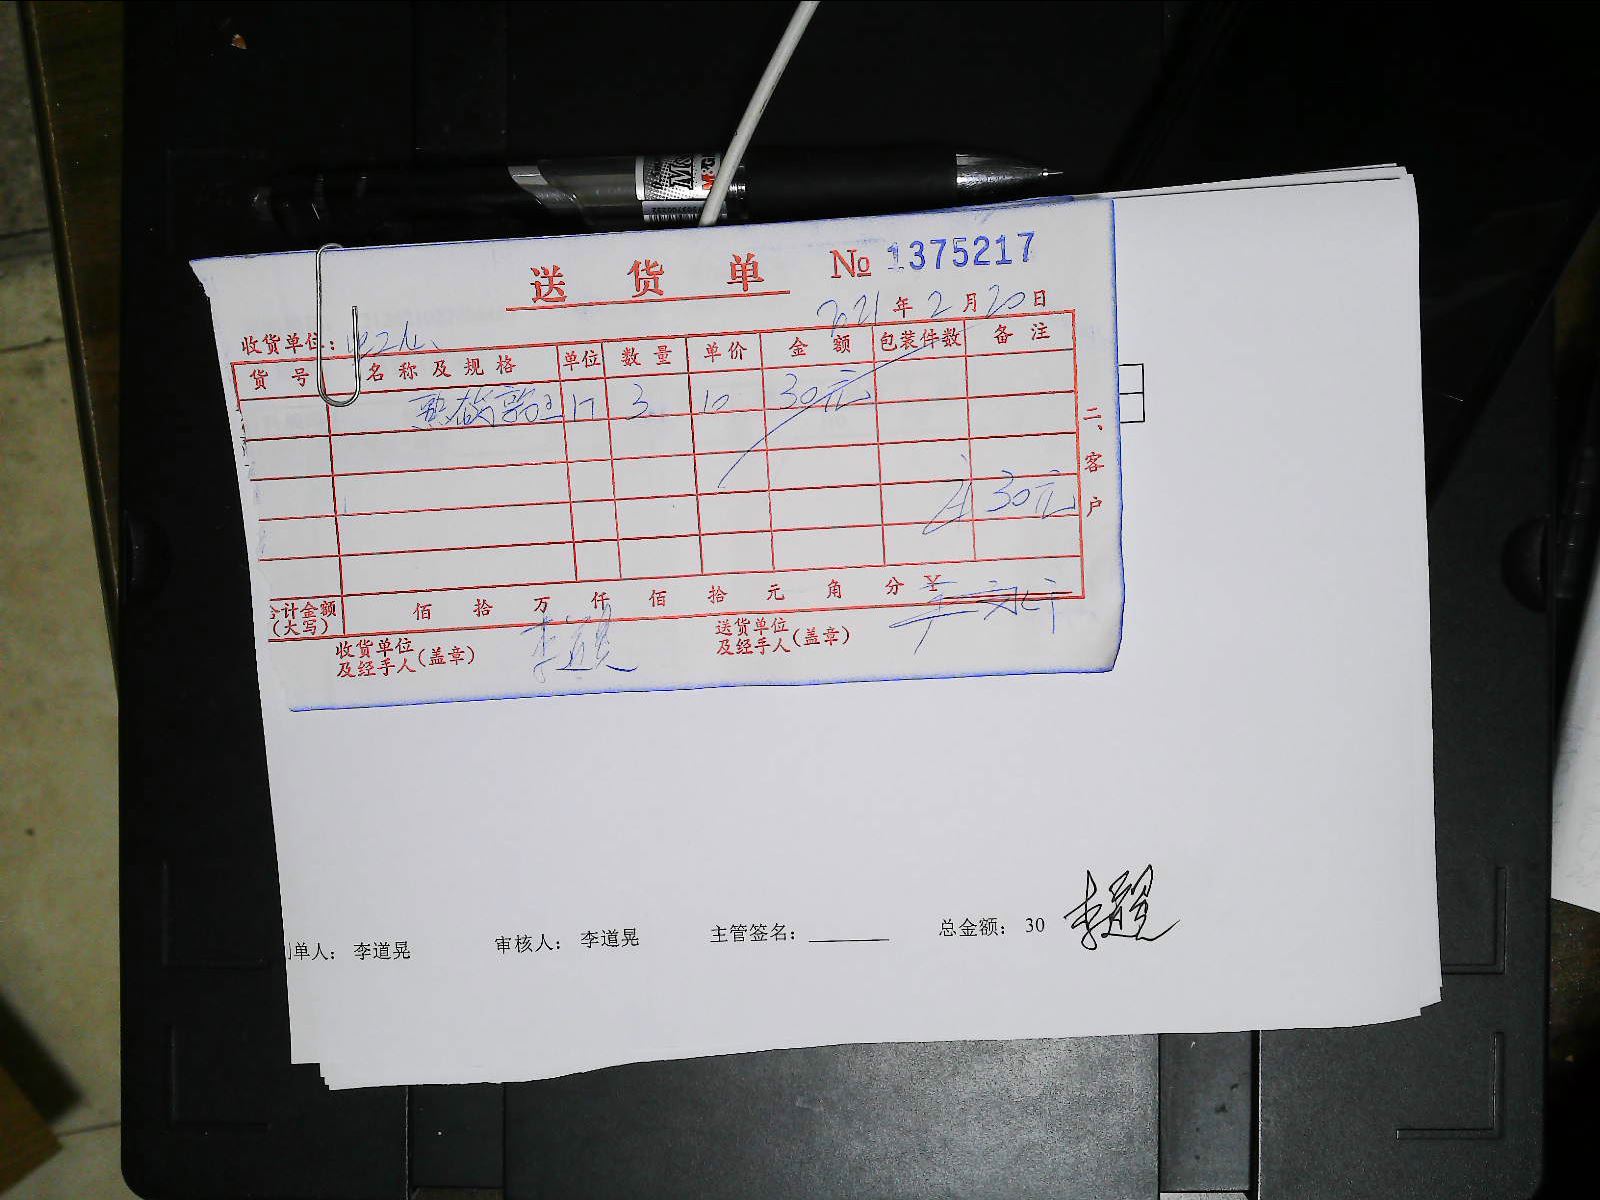 M&G
送货单 № 1375217
2021年2月20日
收货单位：
货号 名称及规格 单位 数量 单价 金额 包装件数 备注
3 10 30元
30元
二、客户
合计金额(大写) 佰 拾 万 仟 佰 拾 元 角 分 ¥
收货单位及经手人(盖章) 李道晃 送货单位及经手人(盖章)
单人： 李道晃 审核人： 李道晃 主管签名： 总金额： 30 李道晃